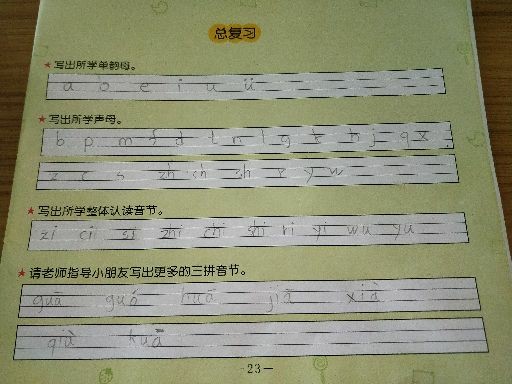 总复习
★写出所学单韵母。
a o e i u ü
★写出所学声母。
b p m f d t n l g k h j q x
z c s zh ch sh r y w
★写出所学整体认读音节。
zi ci si zhi chi shi ri yi wu yu
★请老师指导小朋友写出更多的三拼音节。
guā guó huā jiā xià
qià kuā
-23-